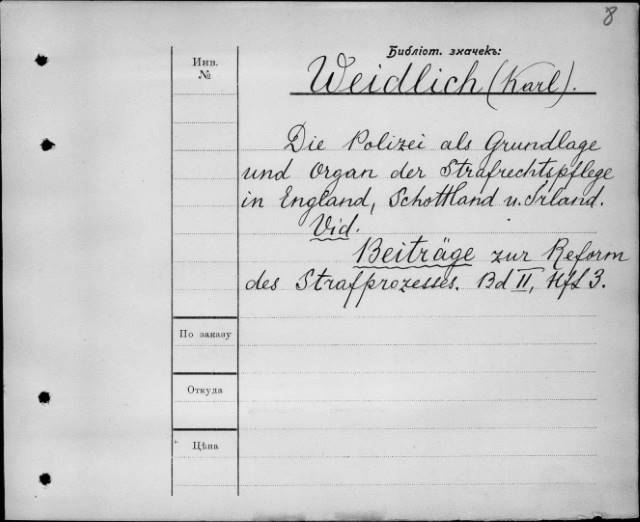 8
Библіот. значекъ:
Инв.
№
Weidlich (Karl).
Die Polizei als Grundlage
und Organ der Strafrechtspflege
in England, Schottland u. Irland.
Vid.
Beiträge zur Reform
des Strafprozesses. Bd II, Hft 3.
По заказу
Откуда
Цѣна